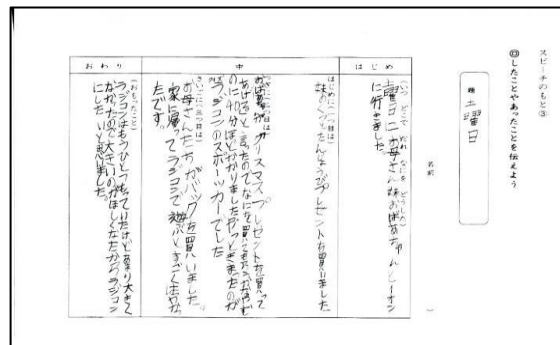 スピーチのもと③
◎したことやあったことを伝えよう
題 土曜日
名前（　　　）
はじめ
（いつ どこで だれ なにを どうした）
土曜日にお母さんと妹とおばあちゃんとイオン
に行きました。
中
はじめに（一つ目は）
妹のたんじょうびプレゼントを買いました。
つぎに（二つ目は）
おばあちゃんがクリスマスプレゼントを買って
あげると言ったのでなにを買ってもらうか
のに40分ほどかかりましたがやっときまったのが
ラジコンのスポーツカーでした
さいごに（三つ目は）
お母さんたちがバッグを買いました。
家に帰ってラジコンで遊ぶとすごく
たです。
おわり
（おもったこと）
ラジコンはもうひとつもっていたけどあまり大きく
なかったので大きいのがほしくなたからラジコン
にしたいと思いました。